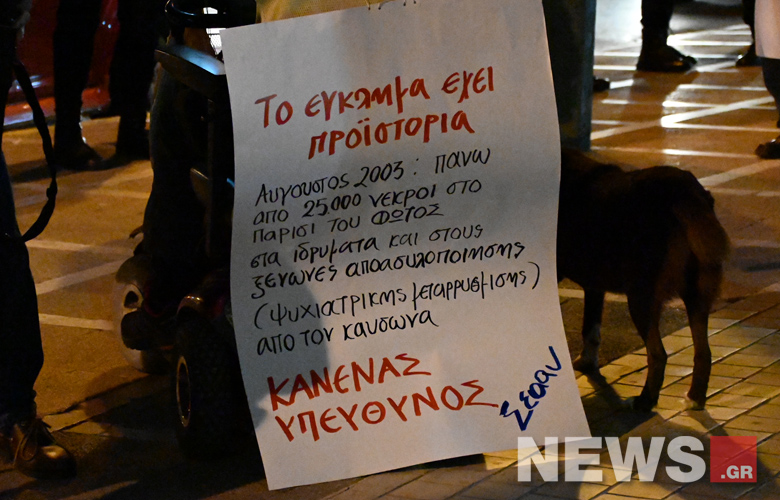 Το εγκλημα εχει
προϊστορια
Αυγουστος 2003: πανω
απο 25.000 νεκροι στο
Παρισι του Φωτος
στα ιδρυματα και στους
ξενωνες αποασυλοποιησης
(ψυχιατρικης μεταρρυσμισης)
απο τον καυσωνα
ΚΑΝΕΝΑΣ
ΥΠΕΥΘΥΝΟΣ
NEWS
.GR